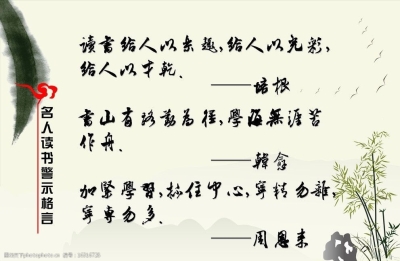 读书给人以乐趣,给人以光彩,
给人以才乾、
——培根
書山有路勤為径,學海無涯苦
作舟、
——韓愈
加緊學習,抓住中心,寧精勿雜,
寧專勿多、
——周恩来
名人读书警示格言